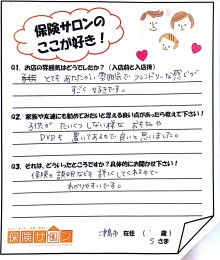 保険サロンの
ここが好き！
Q1. お店の雰囲気はどうでしたか？（入店前と入店後）
とてもあたたかい雰囲気でフレンドリーな感じが
すごく好きです。
Q2. 家族や友達にも勧めてみたいと思える良い点があったら教えて下さい！
子供がたいくつしない様なおもちゃや
DVDも置いてあるので良いと思いました。
Q3. それは、どういったところですか？具体的にお聞かせ下さい！
保険の説明なども詳しくしてくれるので
わかりやすいです。
保険サロン
在住（ 歳）
Sさま